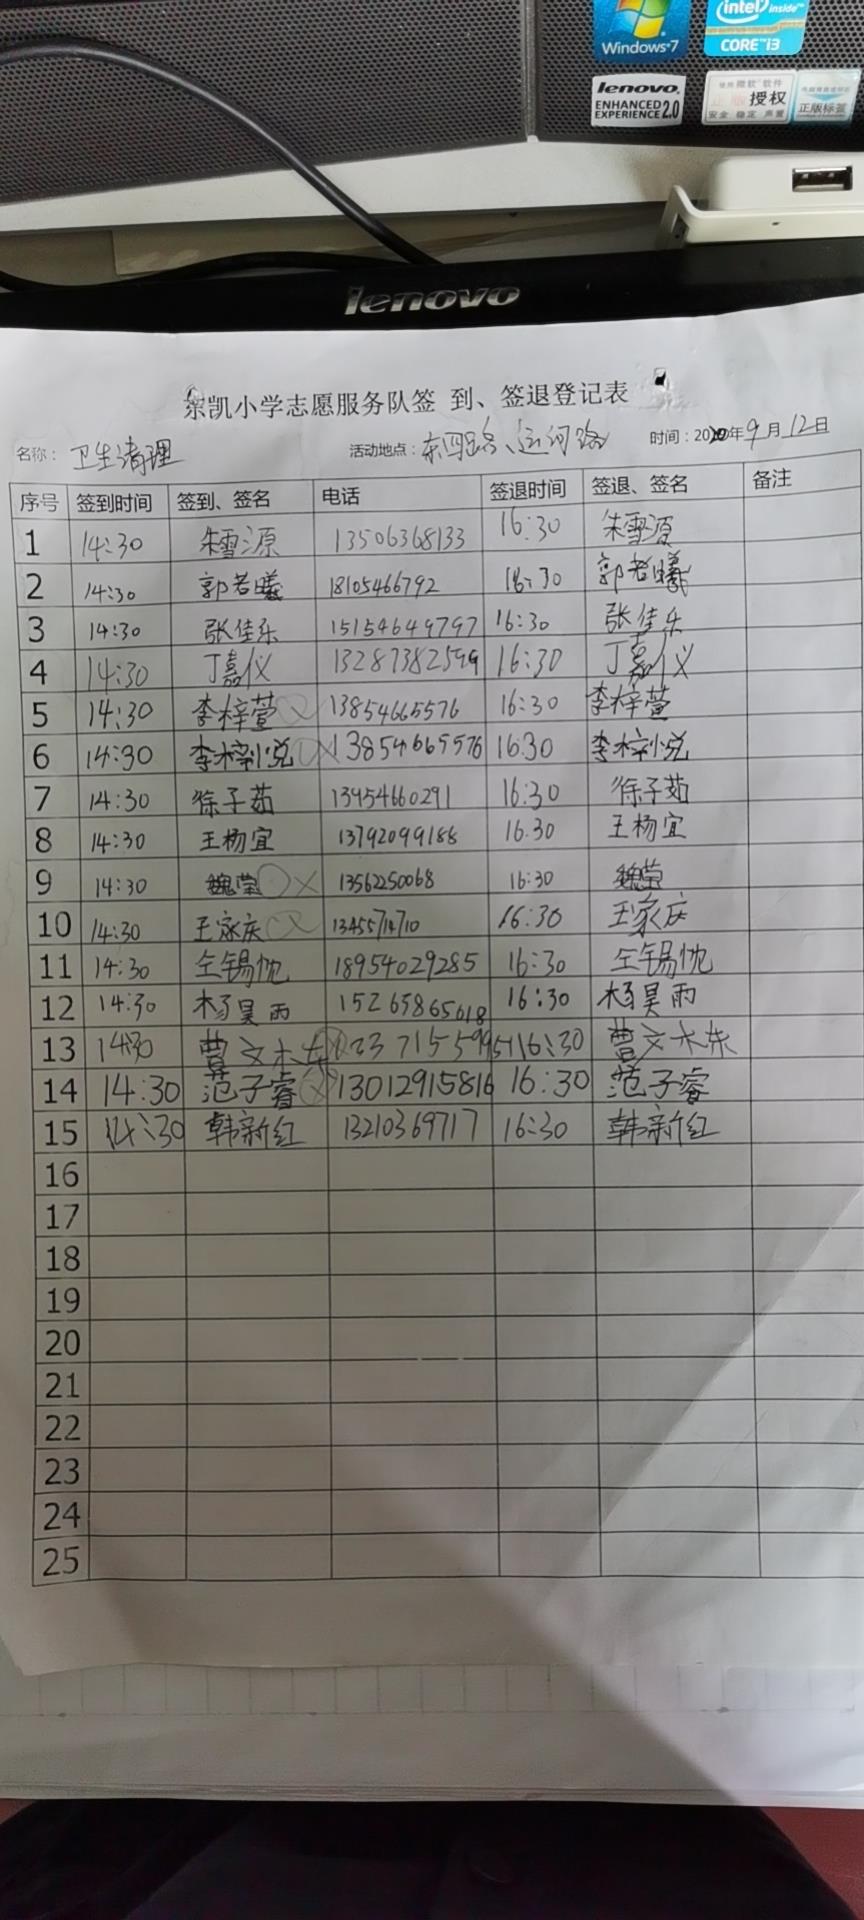 Windows 7
intel inside
CORE i3
lenovo
ENHANCED
EXPERIENCE 2.0
使用 微软 软件
正版 授权
安全 稳定 声置
正版标签
lenovo
东凯小学志愿服务队签 到、签退登记表
名称：卫生清理 活动地点：东四路、运河路 时间：2020年9月12日
序号 签到时间 签到、签名 电话 签退时间 签退、签名 备注
1 14:30 朱雪源 13506368133 16:30 朱雪源
2 14:30 郭若曦 18105466792 16:30 郭若曦
3 14:30 张佳乐 15154649797 16:30 张佳乐
4 14:30 丁嘉仪 13287382599 16:30 丁嘉仪
5 14:30 李梓萱 13854665576 16:30 李梓萱
6 14:30 李梓悦 13854665576 16:30 李梓悦
7 14:30 徐子茹 13954660291 16:30 徐子茹
8 14:30 王杨宜 13792099188 16.30 王杨宜
9 14:30 魏莹 13562250068 16:30 魏莹
10 14:30 王家庆 13455714710 16:30 王家庆
11 14:30 仝锡忱 18954029285 16:30 仝锡忱
12 14:30 杨昊雨 15265865618 16:30 杨昊雨
13 1430 曹文 16:30 曹文
14 14:30 范子睿 13012915816 16:30 范子睿
15 14:30 韩新红 13210369717 16:30 韩新红
16
17
18
19
20
21
22
23
24
25